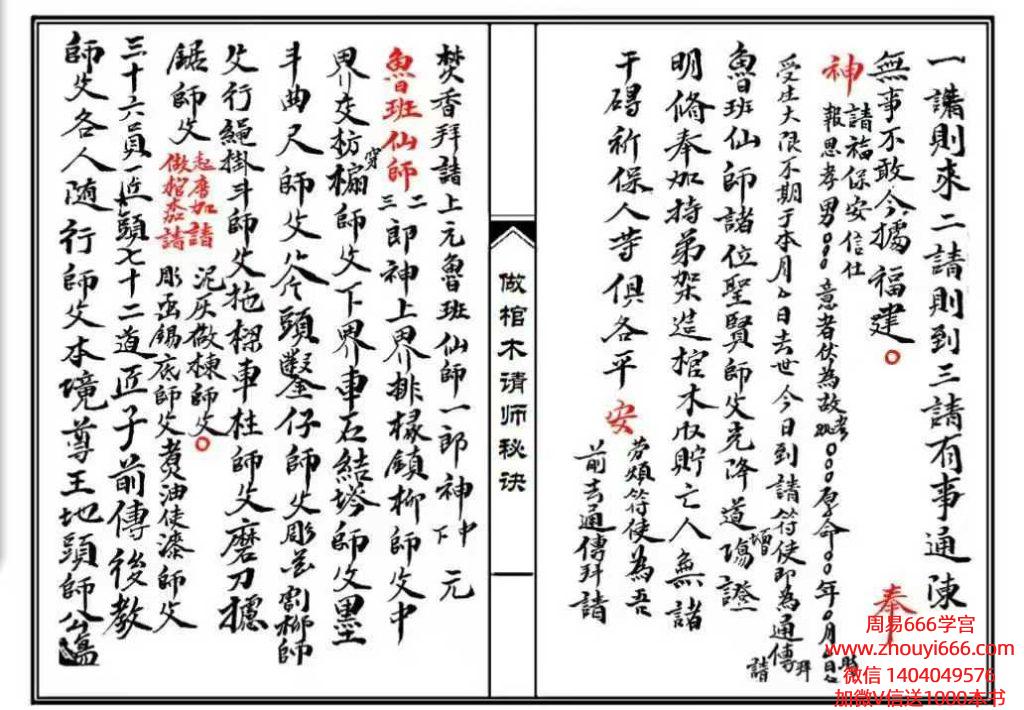 一請則來二請則到三請有事通陳
無事不敢今據福建○　奉
神請福保安信仕
報恩孝男○○○意者伏為故考妣○○○原命○○年○月○日○時
受生大限不期于本月　日去世今日到請符使即為通傳拜請
魯班仙師諸位聖賢師父光降道場證
明修奉加持弟架造棺木收貯亡人無諸
干碍祈保人等俱各平安
勞煩符使為吾
前去通傳拜請
做棺木请师秘诀
焚香拜請上元魯班仙師一郎神中下元
魯班仙師二三郎神上界排椽鎮柳師父中
界交枋穿師父下界車石結塔師父墨
斗曲尺師父斧頭鑿仔師父彫花割柳師
父行繩掛斗師父拖樑車柱師父磨刀
鋸師父
起厝加請
做棺木加請
泥灰做棟師父○
彫画錫底師父煮油使漆師父
三十六員匠頭七十二道匠子前傳後教
師父各人随行師父本境尊王地頭師公
周易666学宫
www.zhouyi666.com
微信 1404049576
加微V信送1000本书